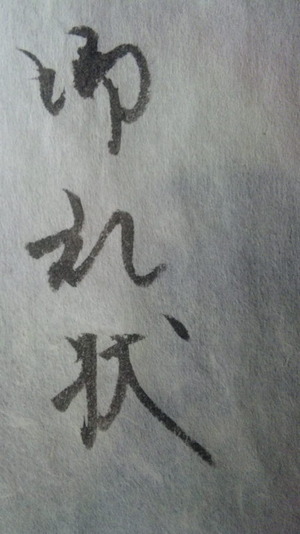 御礼状